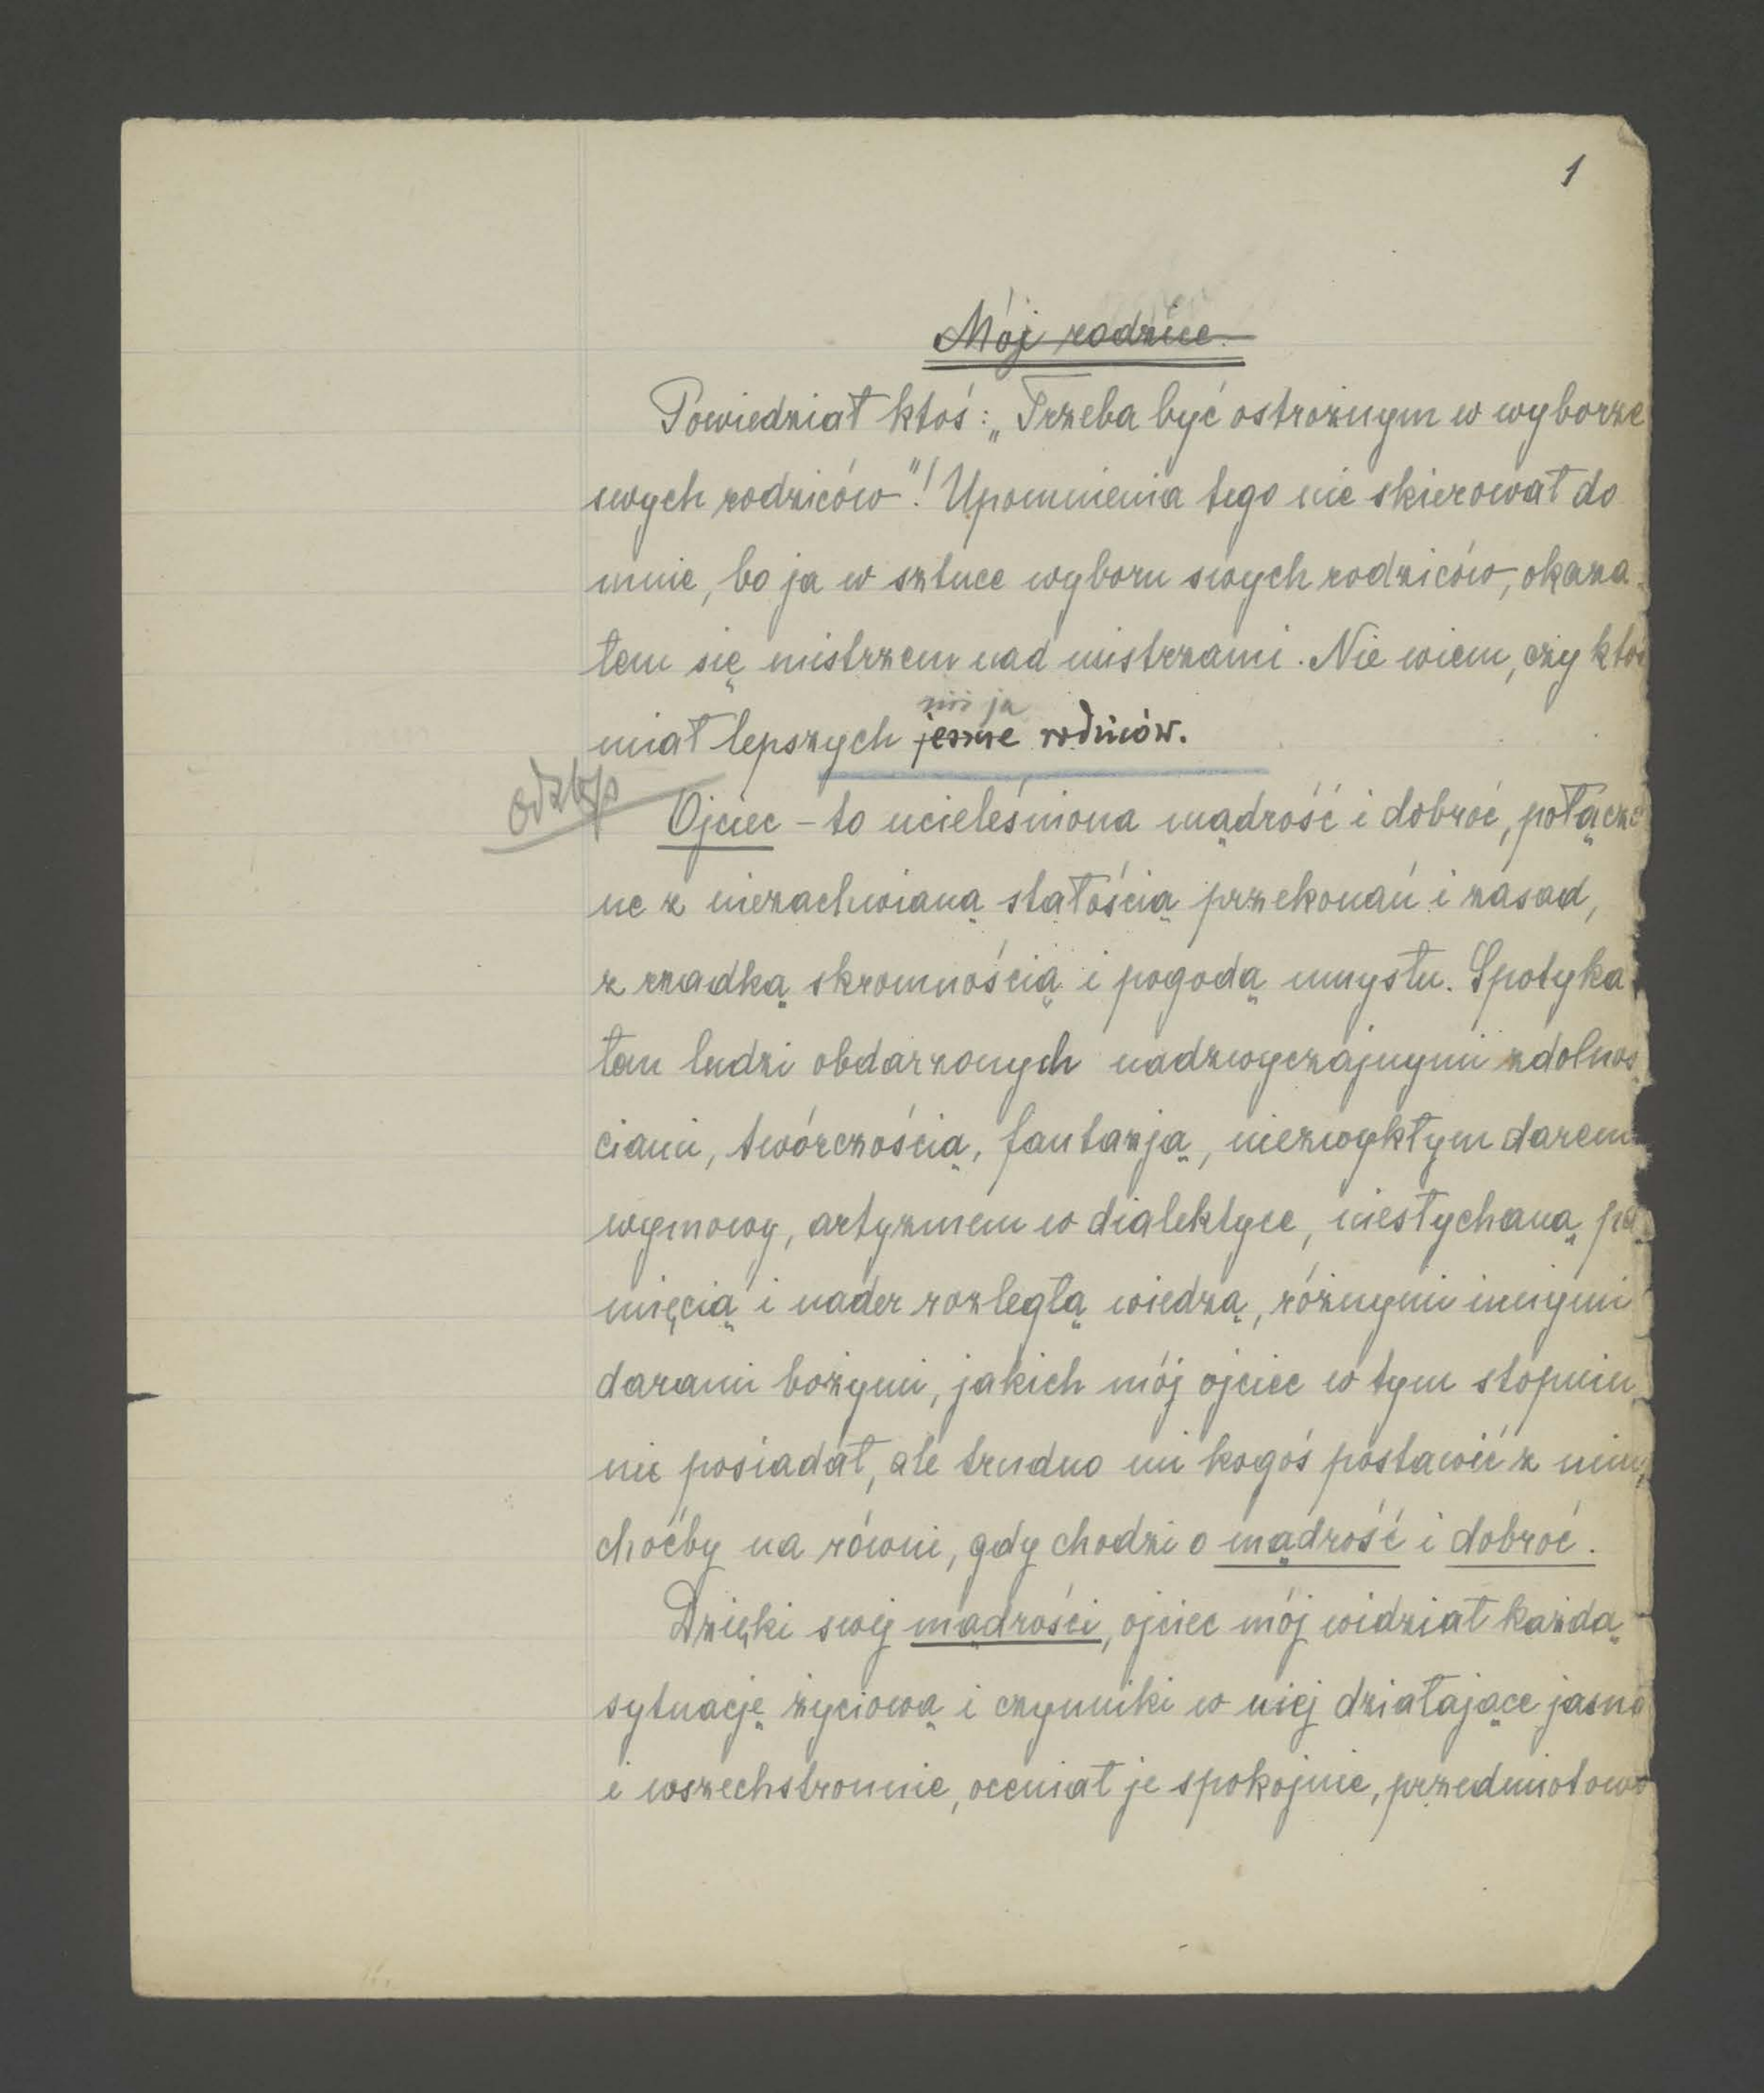 1
Mój rodzice.
Powiedział ktoś: „Trzeba być ostrożnym w wyborze
swych rodziców"! Upomnienia tego nie skierował do
mnie, bo ja w sztuce wyboru swych rodziców, okaza-
łem się mistrzem nad mistrzami. Nie wiem, czy ktoś
niż ja
miał lepszych rodziców.
Ojciec – to ucieleśniona mądrość i dobroć, połączo
ne z niezachwianą stałością przekonań i zasad,
z rzadką skromnością i pogodą umysłu. Spotyka
łem ludzi obdarzonych nadzwyczajnymi zdolnoś
ciami, twórczością, fantazją, niezwykłym darem
wymowy, artyzmem w dialektyce, niesłychaną pa
mięcią i nader rozległą wiedzą, różnymi innymi
darami bożymi, jakich mój ojciec w tym stopniu
nie posiadał, ale trudno mi kogoś postawić z nim,
choćby na równi, gdy chodzi o mądrość i dobroć.
Dzięki swej mądrości, ojciec mój widział każdą
sytuację życiową i czynniki w niej działające jasno
i wszechstronnie, oceniał je spokojnie, przedmiotowo